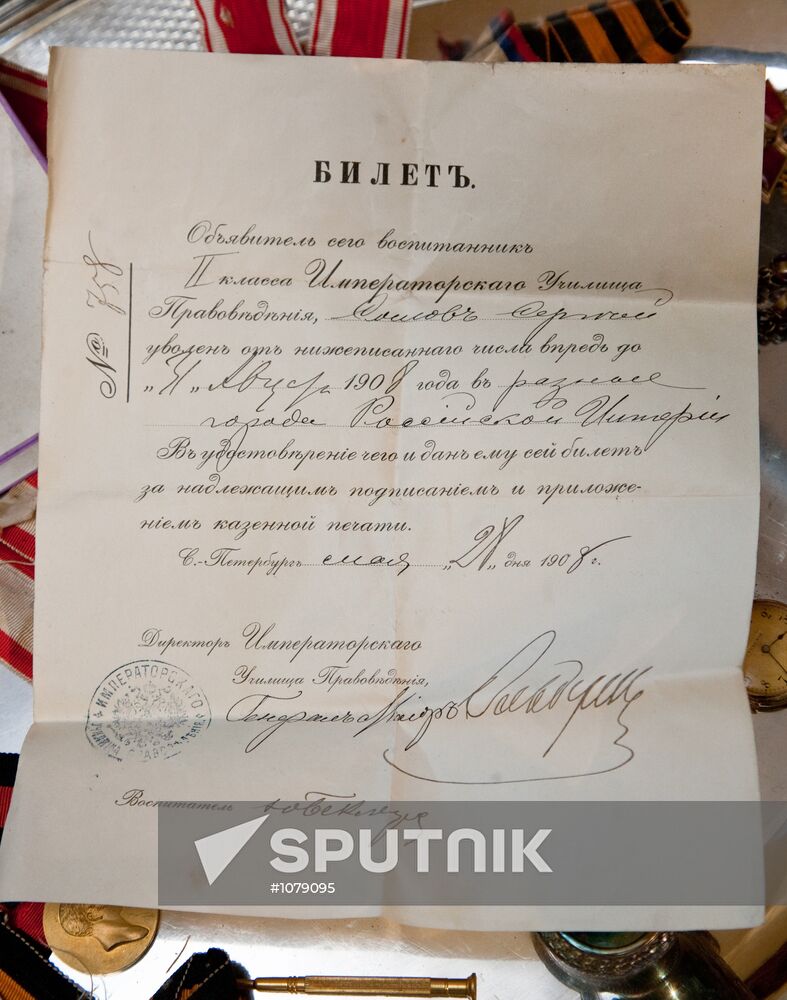 БИЛЕТЪ.
№ 758
Объявитель сего воспитанникъ
II класса Императорскаго Училища
Правовѣдѣнія, Сомовъ Сергей
уволенъ отъ нижеписаннаго числа впредь до
„31„ Августа 1908 года въ разные
города Россійской Имперіи
Въ удостовѣреніе чего и данъ ему сей билетъ
за надлежащимъ подписаніемъ и приложе-
ніемъ казенной печати.
С.-Петербургъ мая „28„ дня 1908 г.
Директоръ Императорскаго
Училища Правовѣдѣнія,
Генералъ-Маіоръ
ИМПЕРАТОРСКАГО УЧИЛИЩА ПРАВОВѢДѢНІЯ
Воспитатель
SPUTNIK
#1079095